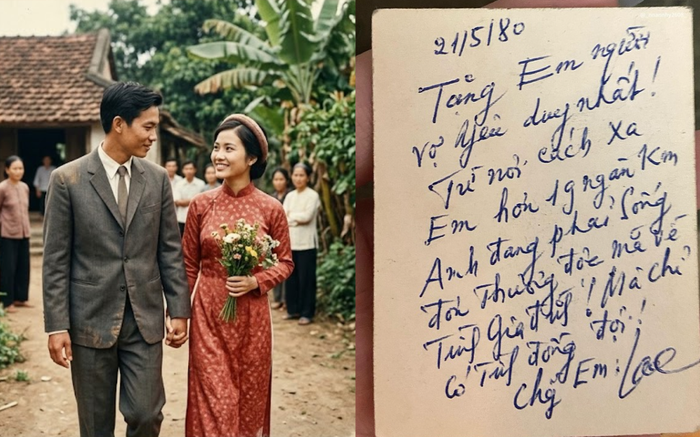 21/5/80
Tặng Em người
vợ yêu duy nhất!
Từ nơi cách xa
Em hơn 19 ngàn Km
Anh đang phải sống
đơn thương độc mã về
Tình Gia đình! Mà chỉ
có Tình đồng đội!
Chg Em: